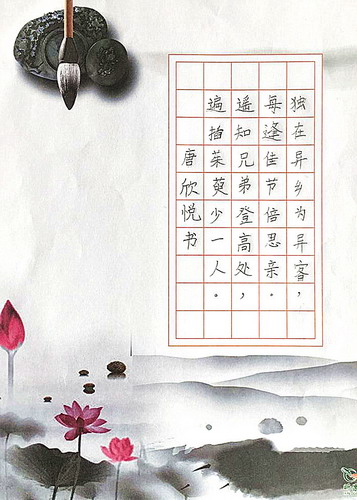 独在异乡为异客，
每逢佳节倍思亲。
遥知兄弟登高处，
遍插茱萸少一人。
唐欣悦书